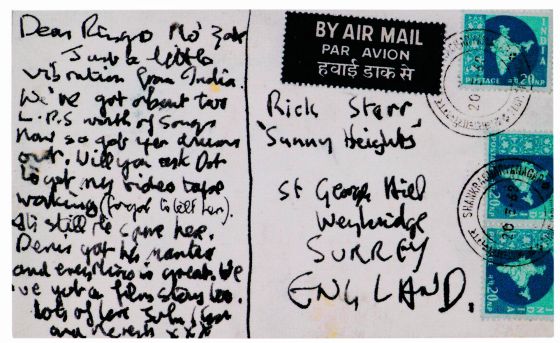 Dear Ringo Mo' Zak
Just a little
vibration from India.
We've got about two
L.P.S worth of songs
now so get yer drums
out. Will you ask Dot
to get my video tape
working (forgot to tell her).
still the same here.
Denis got his mantra
and everything is great. We
've got a film story too.
lots of love John
and xxx
BY AIR MAIL
PAR AVION
हवाई डाक से
Rick Starr
'Sunny Heights'
St George Hill
Weybridge
SURREY
ENGLAND.
INDIA
POSTAGE
20